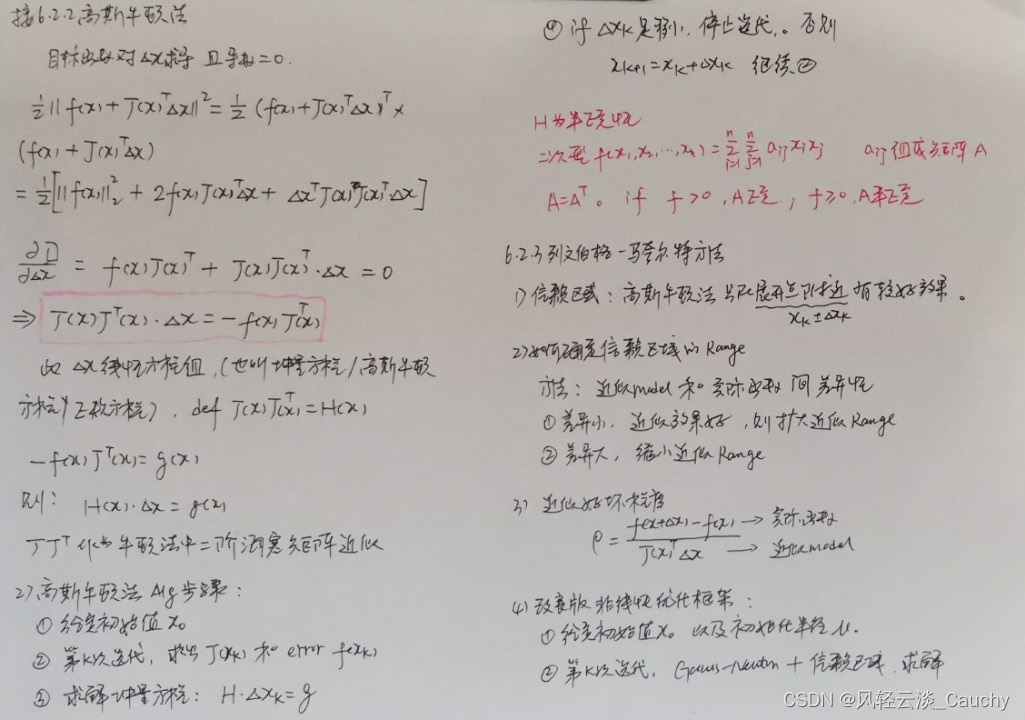 接6.2.2高斯牛顿法
目标函数对Δx求导 且导数=0.
½||f(x)+J(x)ᵀΔx||² = ½ (f(x)+J(x)ᵀΔx)ᵀ ×
(f(x)+J(x)ᵀΔx)
= ½[||f(x)||₂² + 2f(x)J(x)ᵀΔx + ΔxᵀJ(x)J(x)ᵀΔx]
∂[]/∂Δx = f(x)J(x)ᵀ + J(x)J(x)ᵀ·Δx = 0
⇒ J(x)Jᵀ(x)·Δx = -f(x)J(x)ᵀ
此Δx线性方程组,(也叫增量方程/高斯牛顿
方程/正规方程). def J(x)J(x)ᵀ=H(x)
-f(x)Jᵀ(x)=g(x)
则: H(x)·Δx=g(x)
JJᵀ 作为牛顿法中二阶海塞矩阵近似
2)高斯牛顿法 Alg步骤:
① 给定初始值x₀
② 第K次迭代, 求出J(xₖ) 和 error f(xₖ)
③ 求解增量方程: H·Δxₖ=g
④ if Δxₖ足够小, 停止迭代。否则
xₖ₊₁=xₖ+Δxₖ 继续②
H为半正定性
二次型 f(x₁,x₂,…,xₙ)=∑ⁿᵢ₌₁∑ⁿⱼ₌₁ aᵢⱼxᵢxⱼ aᵢⱼ组成矩阵A
A=Aᵀ。if f>0,A正定; f≥0,A半正定
6.2.3列文伯格-马夸尔特方法
1)信赖区域: 高斯牛顿法只在展开点附近有较好效果。
xₖ±Δxₖ
2)如何确定信赖区域的Range
方法: 近似model和实际函数间差异性
① 差异小, 近似效果好, 则扩大近似Range
② 差异大, 缩小近似Range
3) 近似好坏程度
ρ = f(x+Δx)-f(x) → 实际函数
J(x)ᵀΔx → 近似model
4)改良版非线性优化框架:
① 给定初始值x₀ 以及初始化半径μ.
② 第K次迭代, Gauss-Newton + 信赖区域 求解
CSDN @风轻云淡_Cauchy